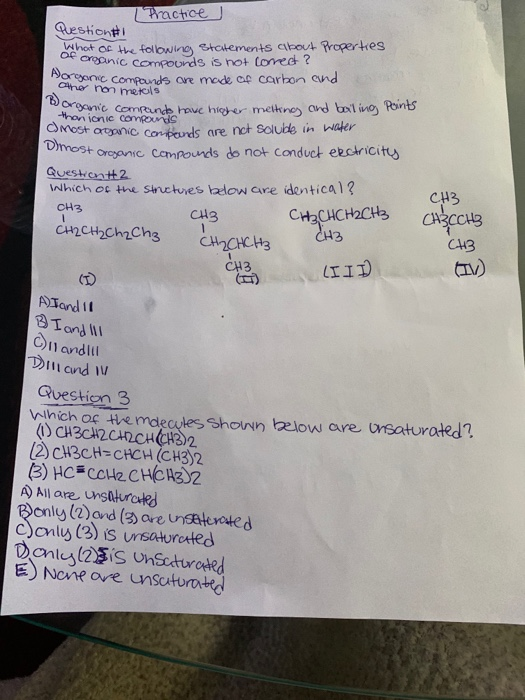 Practice
Question#1
What of the following statements about Properties
of organic compounds is not correct?
A) organic compounds are made of carbon and
other non metals
B) organic compounds have higher melting and boiling Points
than ionic compounds
C) most organic compounds are not soluble in water
D) most organic compounds do not conduct electricity
Question #2
Which of the structures below are identical?
CH3
CH2CH2Ch2Ch3
(I)
CH3
CH2CHCH3
CH3
(II)
CH3CHCH2CH3
CH3
(III)
CH3
CH3CCH3
CH3
(IV)
A) I and II
B) I and III
C) II and III
D) III and IV
Question 3
Which of the molecules shown below are unsaturated?
(1) CH3CH2CH2CH(CH3)2
(2) CH3CH=CHCH(CH3)2
(3) HC≡CCH2CH(CH3)2
A) All are unsaturated
B) only (2) and (3) are unsaturated
C) only (3) is unsaturated
D) only (2) is unsaturated
E) None are unsaturated